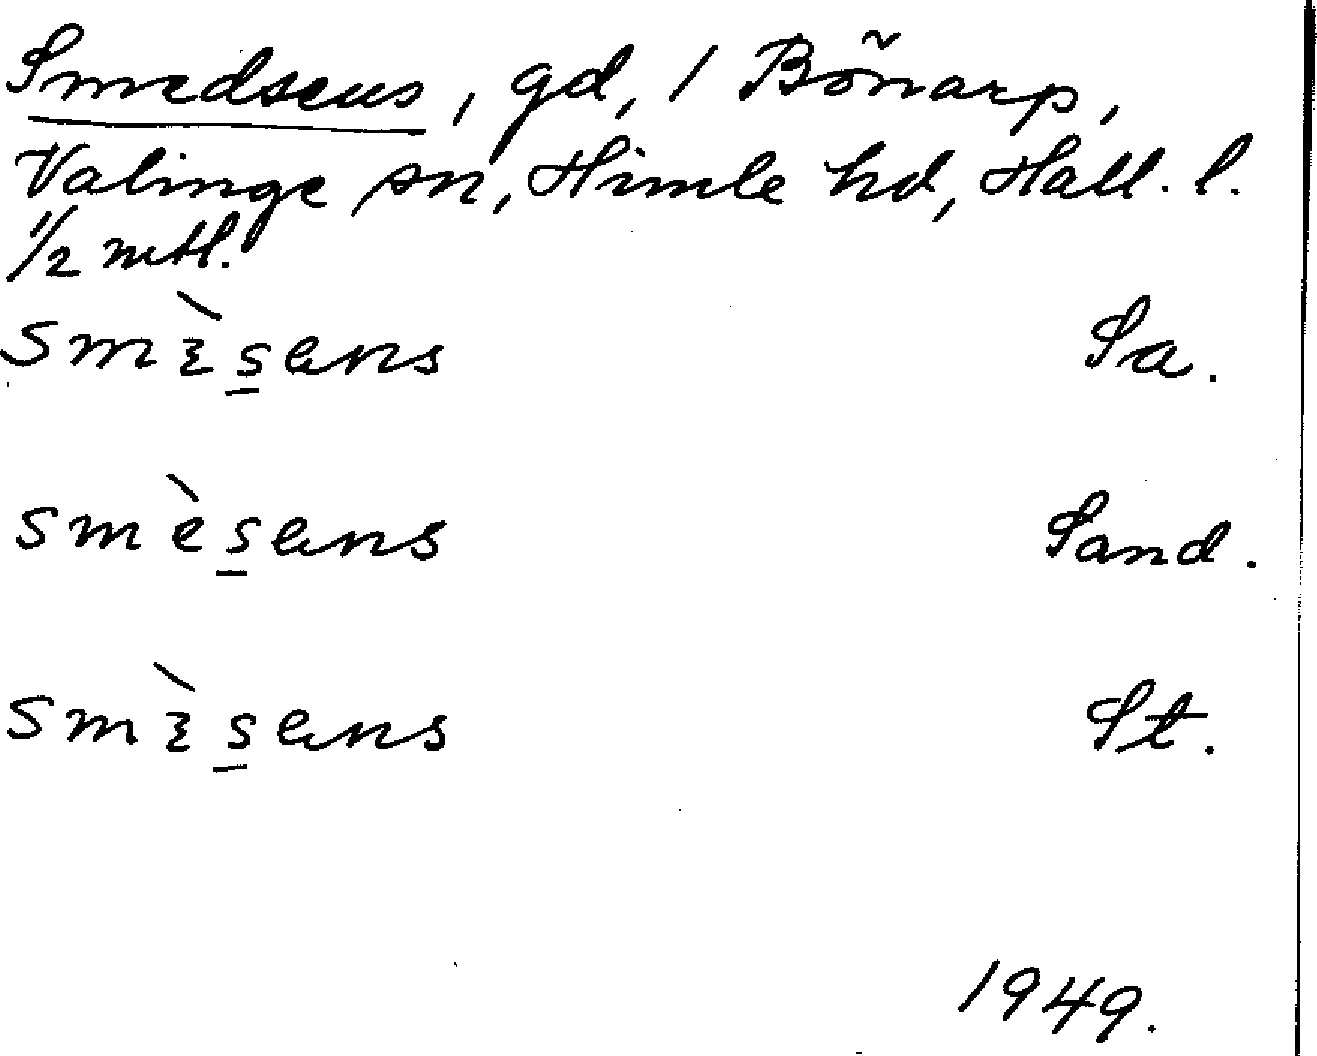 Smedsens, gd, 1 Bönarp,
Valinge sn, Himle hd, Hall. l.
1/2 mtl.
smὲsans Sa.
smèsans Sand.
smὲsans St.
1949.